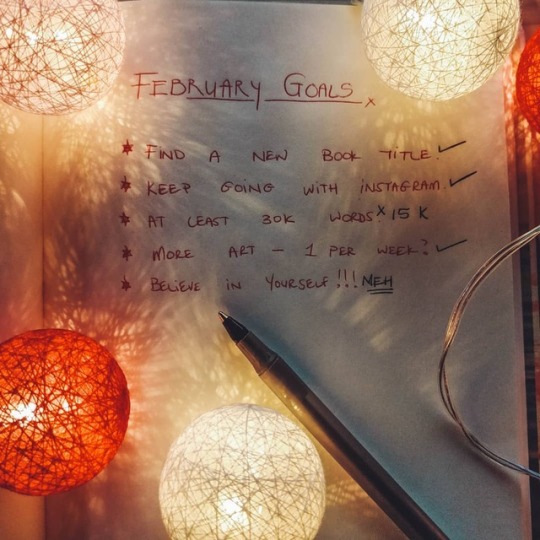 FEBRUARY GOALS x
* FIND A NEW BOOK TITLE. ✓
* KEEP GOING WITH INSTAGRAM. ✓
* AT LEAST 30K WORDS. x 15 K
* MORE ART – 1 PER WEEK? ✓
* BELIEVE IN YOURSELF!!! NEH